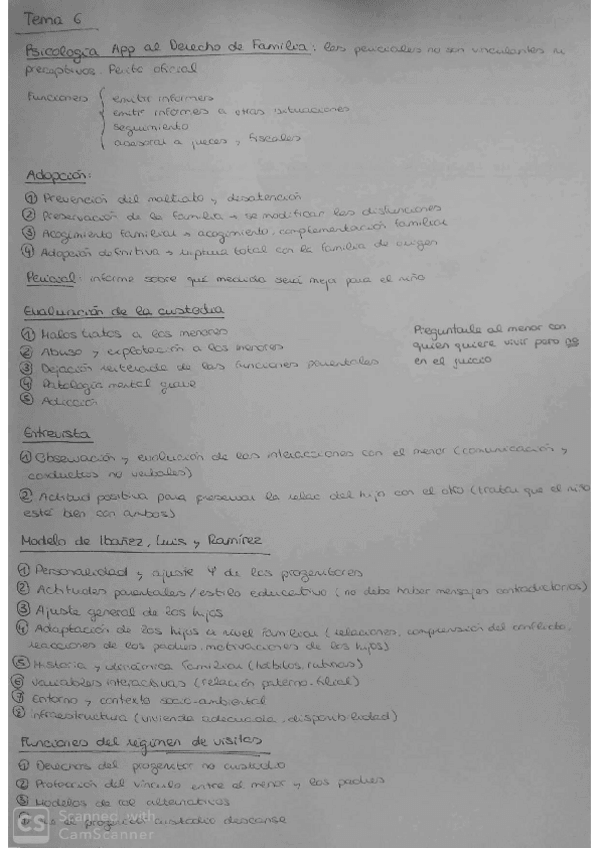 Tema 6
Psicología App al Derecho de Familia: los periciales no son vinculantes ni
preceptivos. Perito oficial
Funciones
emitir informes
emitir informes a otras situaciones
seguimiento
asesorar a jueces y fiscales
Adopción:
① Prevención del maltrato y desatención
② Preservación de la familia → se modifican las disfunciones
③ Acogimiento familiar → acogimiento, complementación familiar
④ Adopción definitiva → ruptura total con la familia de origen
Pericial: informe sobre qué medida será mejor para el niño
Evaluación de la custodia
① Malos tratos a los menores
② Abuso y explotación a los menores
③ Dejación reiterada de las funciones parentales
④ Patología mental grave
⑤ Adicción
Preguntarle al menor con
quien quiere vivir pero
en el juicio
Entrevista
① Observación y evaluación de las interacciones con el menor (comunicación y
conductas no verbales)
② Actitud positiva para preservar la relac del hijo con el otro (tratar que el niño
esté bien con ambos)
Modelo de Ibañez, Luis y Ramírez
① Personalidad y ajuste Ψ de los progenitores
② Actitudes parentales/estilo educativo (no debe haber mensajes contradictorios)
③ Ajuste general de los hijos
④ Adaptación de los hijos a nivel familiar (relaciones, comprensión del conflicto,
reacciones de los padres, motivaciones de los hijos)
⑤ Historia y dinámica familiar (hábitos, rutinas)
⑥ Variables interactivas (relación paterno-filial)
⑦ Entorno y contexto socio-ambiental
⑧ Infraestructura (vivienda adecuada, disponibilidad)
Funciones del régimen de visitas
① Derechos del progenitor no custodio
② Protección del vínculo entre el menor y los padres
③ Modelos de rol alternativos
progenitor custodio descanse
CS Scanned with
CamScanner